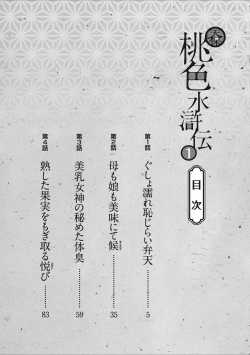 桃色水滸伝
1
目次
第1話
ぐしょ濡れ恥じらい弁天…………5
第2話
母も娘も美味にて候…………35
第3話
美乳女神の秘めた体臭…………59
第4話
熟した果実をもぎ取る悦び……83